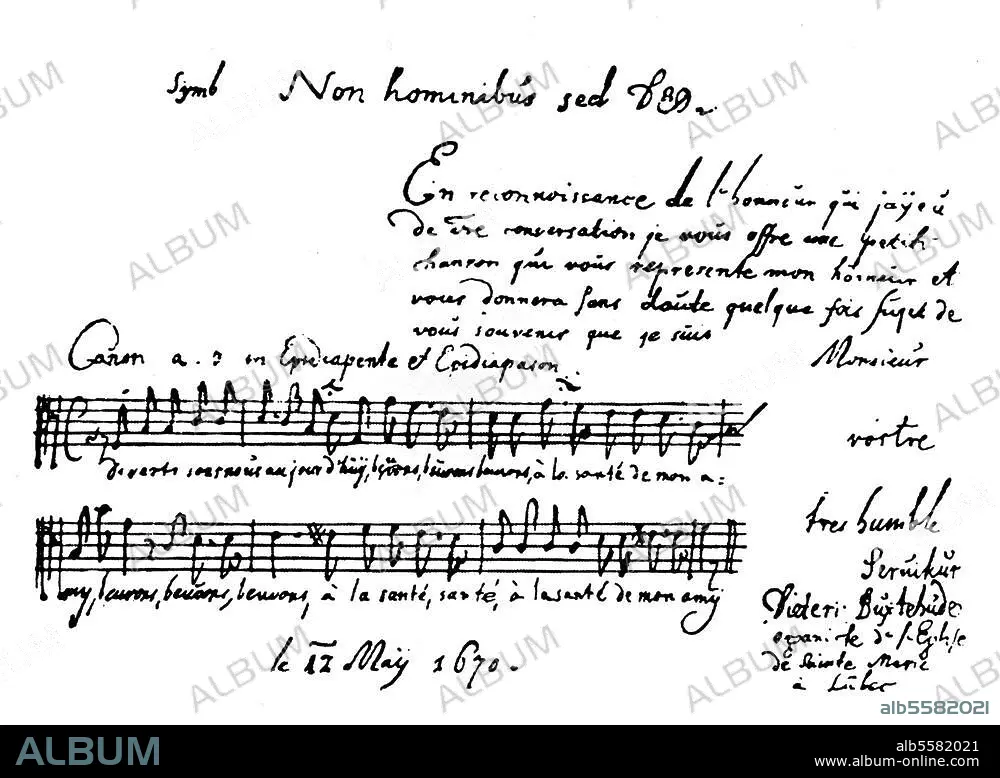 Symb Non hominibus sed DEO
En reconnoissance de l'honneur qui jaÿ eu
de vre conversation je vous offre une petite
chanson qui vous represente mon honneur et
vous donnera sans doute quelque fois sujet de
vous souvenir que je suis
Monsieur
Canon a. 3 in Epidiapente et Epidiapason
vostre
divertissons nous au jour d'hüÿ, beuvons, beuvons, beuvons, à la santé de mon a=
tres humble
Serviteur
my, beuvons, beuvons, beuvons, à la santé, santé, à la santé de mon amÿ
Dieteri. Buxtehude
organiste de l'Eglise
de Sainte Marie
à Lubec
le 12 Maÿ 1670.
ALBUM
alb5582021
ALBUM
alb5582021
www.album-online.com